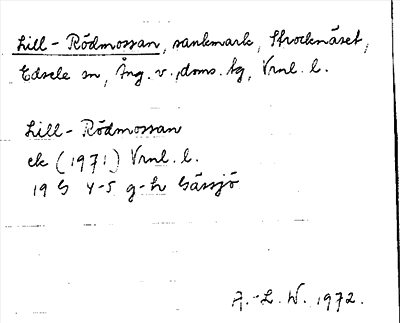 Lill-Rödmossan, sankmark, Strocknäset,
Edsele sn, Ång. v. doms. tg, Vrnl. l.
Lill-Rödmossan
ek (1971) Vrnl. l.
19 G 4-5 g-h Gässjö
A.-L. W. 1972.